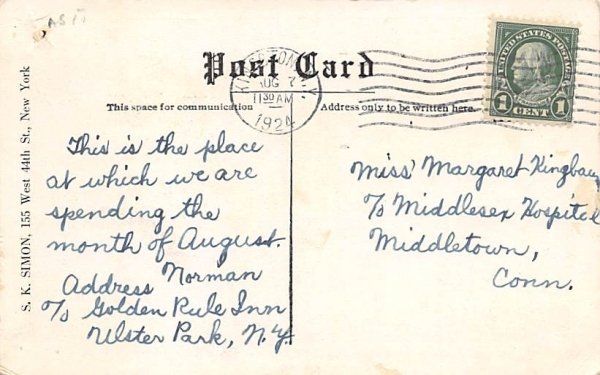 AS IT
Post Card
KINGSTON, N.Y.
AUG 7
11 30 AM
1924
UNITED STATES POSTAGE
1 CENT 1
This space for communication
Address only to be written here.
S. K. SIMON, 155 West 44th St., New York
This is the place
at which we are
spending the
month of August.
Norman
Address
c/o Golden Rule Inn
Ulster Park, N.Y.
Miss Margaret Kingbury
c/o Middlesex Hospital
Middletown,
Conn.